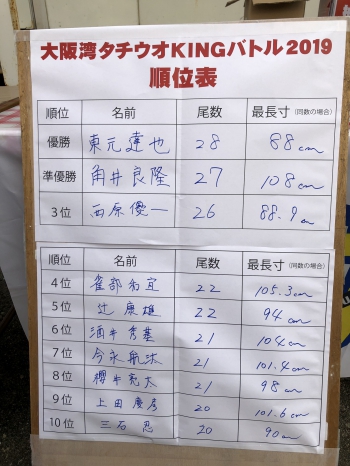 大阪湾タチウオKINGバトル2019
順位表
順位 名前 尾数 最長寸（同数の場合）
優勝 東元達也 28 88cm
準優勝 角井良隆 27 108cm
3位 西原優一 26 88.9cm
順位 名前 尾数 最長寸（同数の場合）
4位 雀部和宜 22 105.3cm
5位 辻康雄 22 94cm
6位 酒井秀基 21 104cm
7位 今永航汰 21 101.4cm
8位 櫻井亮太 21 98cm
9位 上田慶彦 20 101.6cm
10位 三石忍 20 90cm